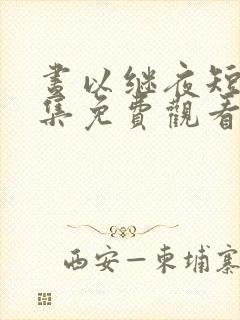 晝以继夜短
集免費觀看
西安—柬埔寨